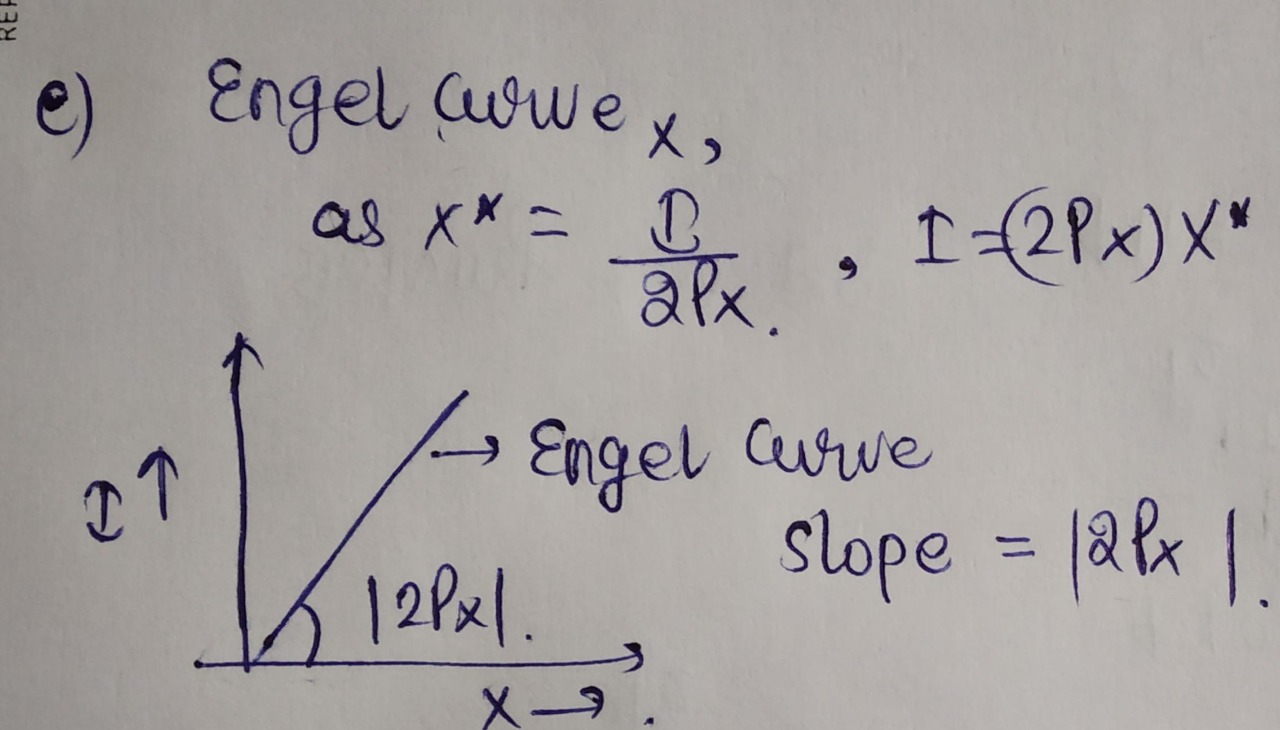 e) Engel Curve x,
as x* = I / 2Px. , I = (2Px) X*
I ↑
→ Engel Curve
slope = |2Px|.
|2Px|.
X → .